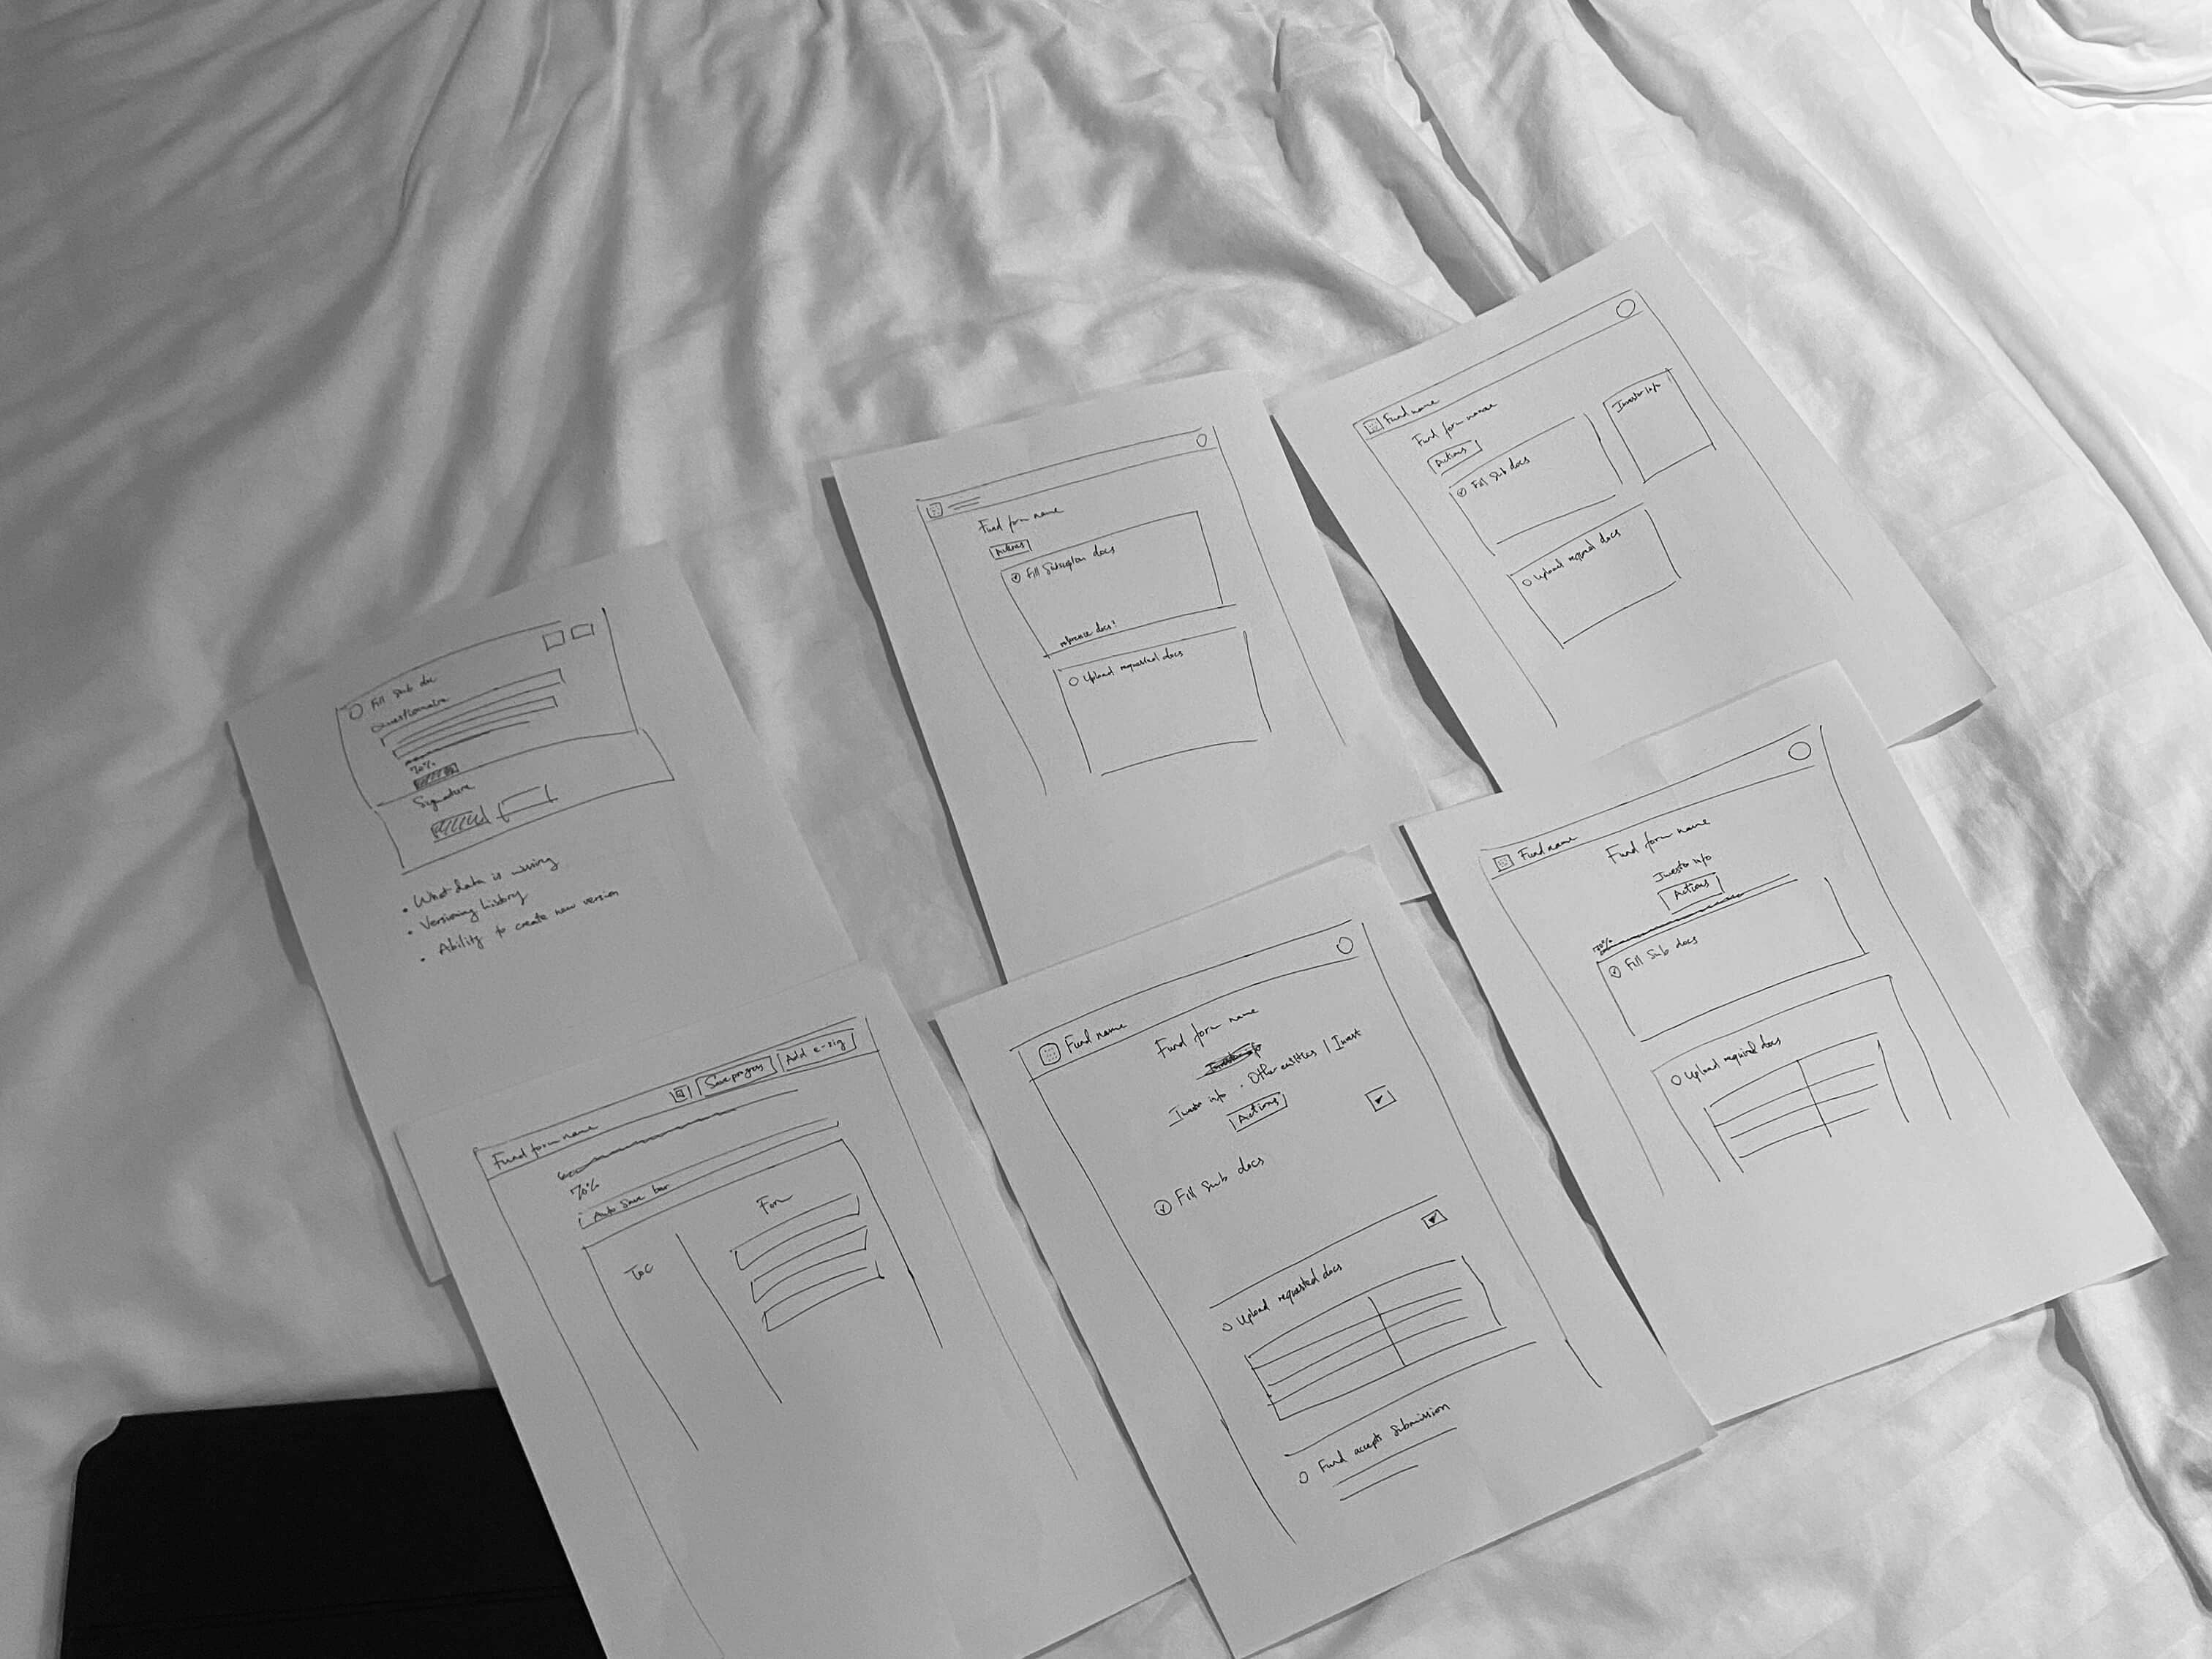 Fill sub doc
Questionnaire
70%
Signature
• What data is missing
• Versioning history
• Ability to create new version
Fund form name
Actions
Fill Subscription docs
reference docs?
Upload requested docs
Fund name
Fund form name
Actions
Fill Sub docs
Investor info
Upload request docs
Fund form name
Save progress
Add e-sig
70%
Auto Save bar
ToC
Form
Fund name
Fund form name
Investor info · Other entities | Invest
Actions
Fill Sub docs
Upload requested docs
Fund accepts submission
Fund name
Fund form name
Investor info
Actions
70%
Fill Sub docs
Upload required docs